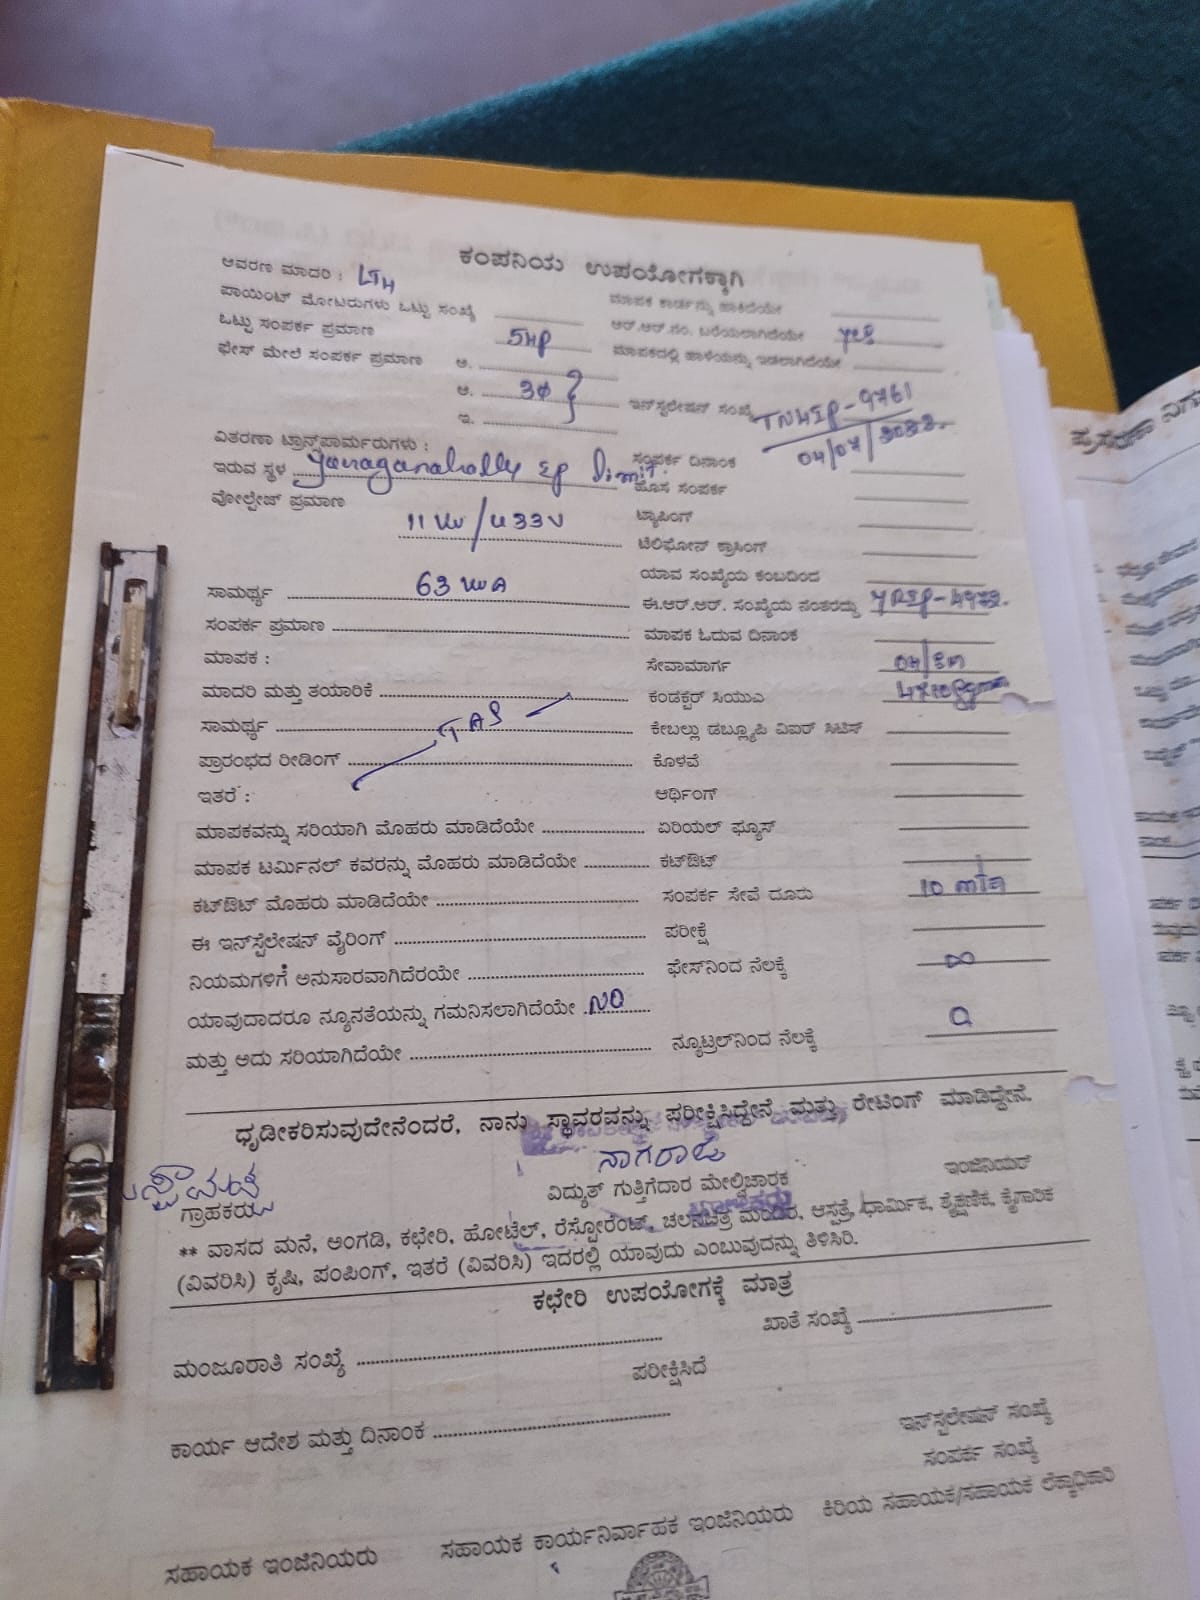 ಕಂಪನಿಯ ಉಪಯೋಗಕ್ಕಾಗಿ
ಆವರಣ ಮಾದರಿ : LTH
ಮಾಪಕ ಕಾರ್ಡನ್ನು ಹಾಕಿದೆಯೇ
ಪಾಯಿಂಟ್ ಮೋಟರುಗಳು ಒಟ್ಟು ಸಂಖ್ಯೆ
ಆರ್.ಆರ್.ನಂ. ಬರೆಯಲಾಗಿದೆಯೇ yes
ಒಟ್ಟು ಸಂಪರ್ಕ ಪ್ರಮಾಣ 5HP
ಮಾಪಕದಲ್ಲಿ ಹಾಳೆಯನ್ನು ಇಡಲಾಗಿದೆಯೇ
ಫೇಸ್ ಮೇಲೆ ಸಂಪರ್ಕ ಪ್ರಮಾಣ ಅ.
ಆ. 3Φ
ಇನ್‌ಸ್ಟಲೇಷನ್ ಸಂಖ್ಯೆ TNHIP-9761
ಇ.
04/07/2022
ವಿತರಣಾ ಟ್ರಾನ್ಸ್‌ಫಾರ್ಮರುಗಳು :
ಸಂಪರ್ಕ ದಿನಾಂಕ
ಇರುವ ಸ್ಥಳ yaraganahally IP limit
ಹೊಸ ಸಂಪರ್ಕ
ವೋಲ್ಟೇಜ್ ಪ್ರಮಾಣ 11 KV/433V
ಟ್ಯಾಪಿಂಗ್
ಟೆಲಿಫೋನ್ ಕ್ರಾಸಿಂಗ್
ಯಾವ ಸಂಖ್ಯೆಯ ಕಂಬದಿಂದ
ಸಾಮರ್ಥ್ಯ 63 KVA
ಈ.ಆರ್.ಆರ್. ಸಂಖ್ಯೆಯ ನಂತರದ್ದು
ಸಂಪರ್ಕ ಪ್ರಮಾಣ
ಮಾಪಕ ಓದುವ ದಿನಾಂಕ
ಮಾಪಕ :
ಸೇವಾಮಾರ್ಗ
ಮಾದರಿ ಮತ್ತು ತಯಾರಿಕೆ
ಕಂಡಕ್ಟರ್ ಸಿಯುಎ
ಸಾಮರ್ಥ್ಯ
ಕೇಬಲ್ಲು ಡಬ್ಲ್ಯೂಪಿ ವಿಐಆರ್ ಸಿಟಿಸ್
ಪ್ರಾರಂಭದ ರೀಡಿಂಗ್
ಕೊಳವೆ
ಇತರೆ :
ಆರ್ಥಿಂಗ್
ಮಾಪಕವನ್ನು ಸರಿಯಾಗಿ ಮೊಹರು ಮಾಡಿದೆಯೇ
ಏರಿಯಲ್ ಫ್ಯೂಸ್
ಮಾಪಕ ಟರ್ಮಿನಲ್ ಕವರನ್ನು ಮೊಹರು ಮಾಡಿದೆಯೇ
ಕಟ್‌ಔಟ್
ಕಟ್‌ಔಟ್ ಮೊಹರು ಮಾಡಿದೆಯೇ
ಸಂಪರ್ಕ ಸೇವೆ ದೂರು
ಈ ಇನ್‌ಸ್ಟೆಲೇಷನ್ ವೈರಿಂಗ್
ಪರೀಕ್ಷೆ
ನಿಯಮಗಳಿಗೆ ಅನುಸಾರವಾಗಿದೆರಯೇ
ಫೇಸ್‌ನಿಂದ ನೆಲಕ್ಕೆ ∞
ಯಾವುದಾದರೂ ನ್ಯೂನತೆಯನ್ನು ಗಮನಿಸಲಾಗಿದೆಯೇ NO
ಮತ್ತು ಅದು ಸರಿಯಾಗಿದೆಯೇ
ನ್ಯೂಟ್ರಲ್‌ನಿಂದ ನೆಲಕ್ಕೆ
ಧೃಡೀಕರಿಸುವುದೇನೆಂದರೆ, ನಾನು ಸ್ಥಾವರವನ್ನು ಪರೀಕ್ಷಿಸಿದ್ದೇನೆ ಮತ್ತು ರೇಟಿಂಗ್ ಮಾಡಿದ್ದೇನೆ.
ನಾಗರಾಜ
ಗ್ರಾಹಕರು
ವಿದ್ಯುತ್ ಗುತ್ತಿಗೆದಾರ ಮೇಲ್ವಿಚಾರಕ
ಇಂಜಿನಿಯರ್
** ವಾಸದ ಮನೆ, ಅಂಗಡಿ, ಕಛೇರಿ, ಹೋಟೆಲ್, ರೆಸ್ಟೋರೆಂಟ್, ಚಲನಚಿತ್ರ ಮಂದಿರ, ಆಸ್ಪತ್ರೆ, ಧಾರ್ಮಿಕ, ಶೈಕ್ಷಣಿಕ, ಕೈಗಾರಿಕೆ
(ವಿವರಿಸಿ) ಕೃಷಿ, ಪಂಪಿಂಗ್, ಇತರೆ (ವಿವರಿಸಿ) ಇದರಲ್ಲಿ ಯಾವುದು ಎಂಬುವುದನ್ನು ತಿಳಿಸಿರಿ.
ಕಛೇರಿ ಉಪಯೋಗಕ್ಕೆ ಮಾತ್ರ
ಮಂಜೂರಾತಿ ಸಂಖ್ಯೆ
ಖಾತೆ ಸಂಖ್ಯೆ
ಪರೀಕ್ಷಿಸಿದೆ
ಕಾರ್ಯ ಆದೇಶ ಮತ್ತು ದಿನಾಂಕ
ಇನ್‌ಸ್ಟಲೇಷನ್ ಸಂಖ್ಯೆ
ಸಂಪರ್ಕ ಸಂಖ್ಯೆ
ಸಹಾಯಕ ಇಂಜಿನಿಯರು
ಸಹಾಯಕ ಕಾರ್ಯನಿರ್ವಾಹಕ ಇಂಜಿನಿಯರು
ಕಿರಿಯ ಸಹಾಯಕ/ಸಹಾಯಕ ಲೆಕ್ಕಾಧಿಕಾರಿ